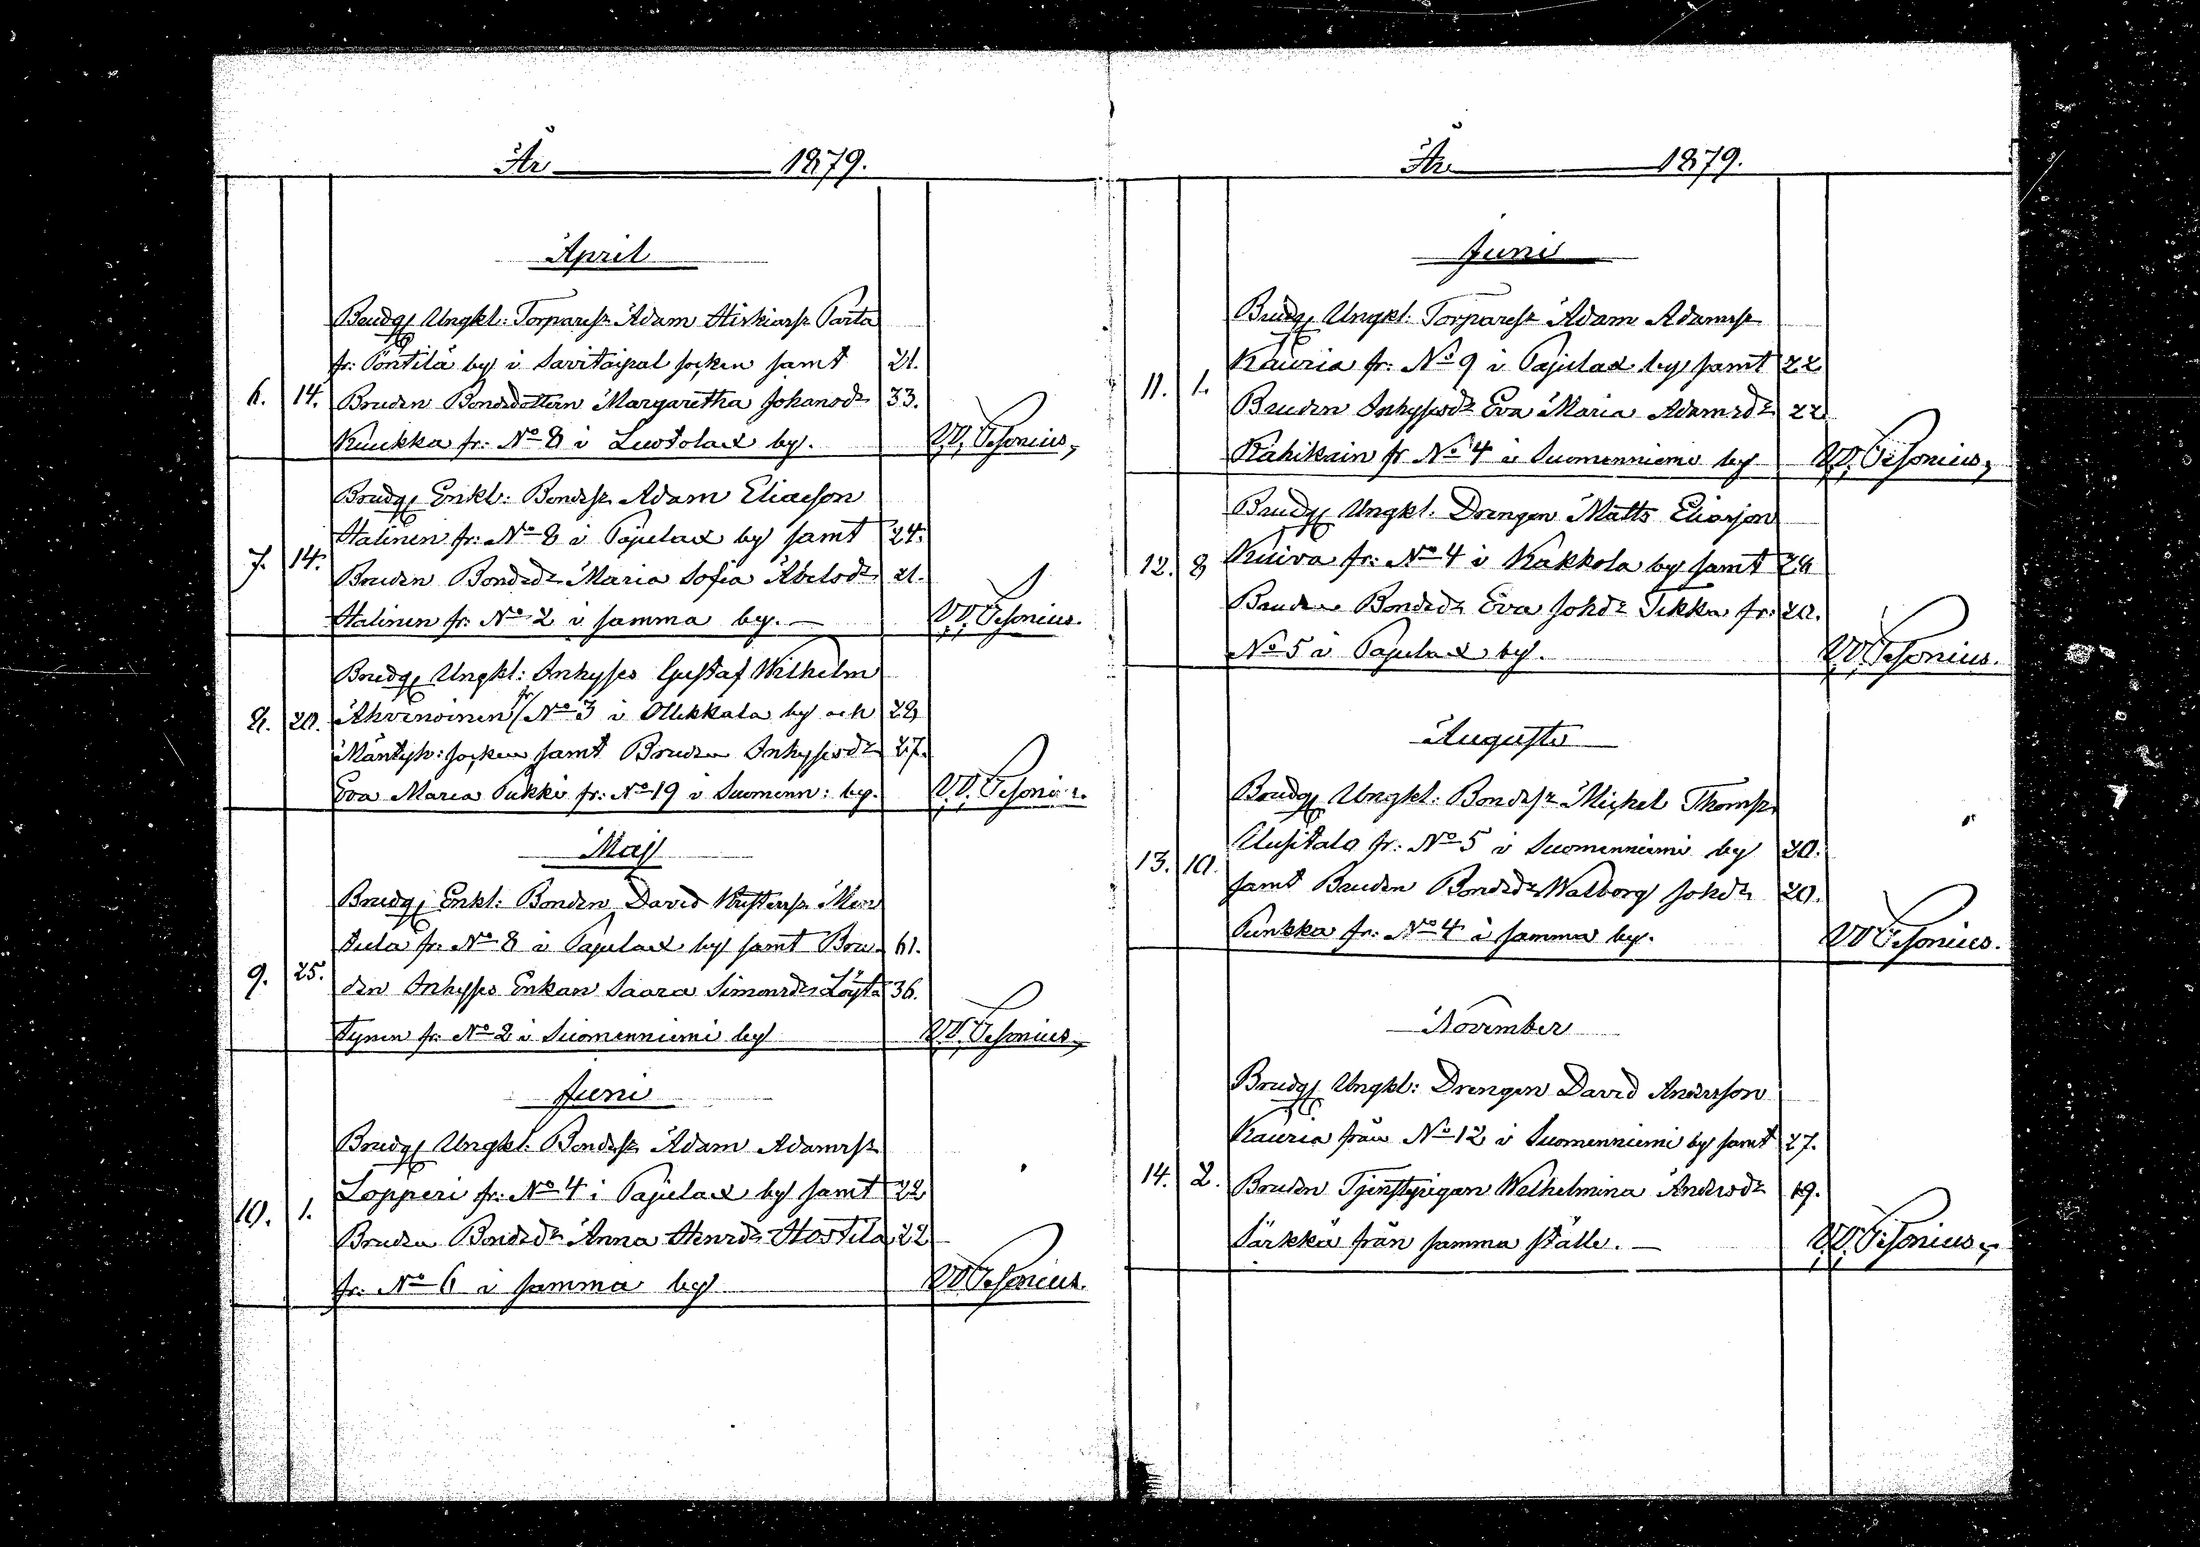 År 1879.
April
Brudg Ungkl: Torparesr Adam Hiskiarsr Parta
fr: Pöntilä by i Savitaipal socken samt 21.
6. 14. Bruden Bondedottern Margaretha Johansdr 33.
Kuukka fr: No 8 i Luotolax by. W. Pesonius,
Brudg Enkl: Bondesr Adam Eliaeson
Halinen fr: No 8 i Pajulax by samt 24.
7. 14. Bruden Bondedr Maria Sofia Abelsdr 21.
Halinen fr: No 2 i samma by. — W. Pesonius.
Brudg Ungkl: Inhyses Gustaf Wilhelm
8. 20. Ahvenoinen fr/ No 3 i Ollikkala by och 28
Mäntyh: socken samt Bruden Inhysesdr 27.
Eva Maria Pukki fr: No 19 i Suomenn: by. W. Pesonius.
Maj
Brudg Enkl: Bonden David Kristersr Men
tula fr: No 8 i Pajulax by samt Bru- 61.
9. 25. den Inhyses Enkan Saara Simonsdr Löyt- 36.
tynen fr: No 2 i Suomenniemi by W. Pesonius,
Juni
Brudg Ungkl: Bondesr Adam Adamsr
Lopperi fr: No 4 i Pajulax by samt 22
10. 1. Bruden Bondedr Anna Henrdr Hostila 22
fr: No 6 i samma by W Pesonius.
År 1879.
Juni
Brudg Ungkl: Torparesr Adam Adamsr
Kauria fr: No 9 i Pajulax by samt 22
11. 1. Bruden Inhysesdr Eva Maria Adamsdr 22
Kähikäin fr No 4 i Suomenniemi by W. Pesonius,
Brudg Ungkl. Drengen Matts Eliasson
12. 8 Kuiva fr: No 4 i Kakkola by samt 28
Bruden Bondedr Eva Johdr Tikka fr: 20.
No 5 i Pajulax by. W Pesonius.
Augusti
Brudg Ungkl: Bondesr Michel Thomsr
Uusitalo fr: No 5 i Suomenniemi by 20.
13. 10. samt Bruden Bondedr Walborg Johdr 20.
Punkka fr: No 4 i samma by. W Pesonius.
November
Brudg Ungkl: Drengen David Andersson
Kauria från No 12 i Suomenniemi by samt 27.
14. 2. Bruden Tjenstpigan Wilhelmina Andersdr 19.
Särkkä från samma ställe. — W. Pesonius,